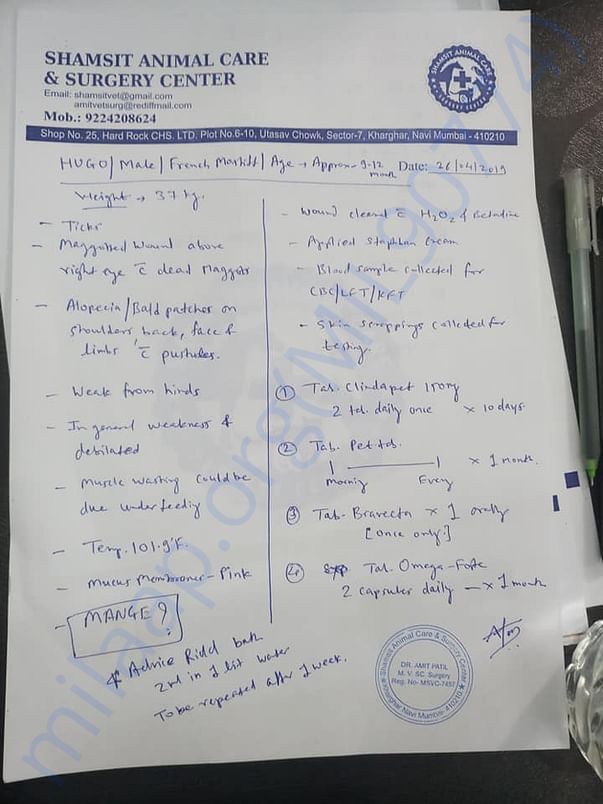 SHAMSIT ANIMAL CARE
& SURGERY CENTER
Email: shamsitvet@gmail.com
amitvetsurg@rediffmail.com
Mob.: 9224208624
SHAMSIT ANIMAL CARE
SURGERY CENTER
Shop No. 25, Hard Rock CHS. LTD. Plot No.6-10, Utasav Chowk, Sector-7, Kharghar, Navi Mumbai - 410210
HUGO / Male / French Mastiff / Age → Approx - 9-12 month Date: 26/04/2019
Weight → 37 kg.
- Ticks
- Maggotted wound above
right eye c̄ dead Maggots
- Alopecia / Bald patches on
shoulders back, face &
limbs c̄ pustules.
- Weak from hinds
- In general weakness &
debilated
- Muscle wasting could be
due underfeeding
- Temp. 101.9°F.
- Mucus Membranes - Pink
- MANGE?
* Advice Ridd bath
2ml in 1 lit water
To be repeated after 1 week.
- Wound cleaned c̄ H2O2 & Betadine
- Applied Staphban cream
- Blood sample collected for
CBC/LFT/KFT
- Skin scrappings collected for
testing.
① Tab. Clindapet 150mg
2 tab daily once x 10 days
② Tab. Pet tab.
1 ——— 1 x 1 month.
Morning Every
③ Tab. Bravecto x 1 orally
[once only.]
④ Tab. Omega-Forte
2 capsules daily — x 1 month
Shamsit Animal Care & Surgery Center
DR. AMIT PATIL
M. V. SC. Surgery
Reg. No- MSVC-7457
Kharghar Navi Mumbai- 410210
milaap.org(MIL90774)